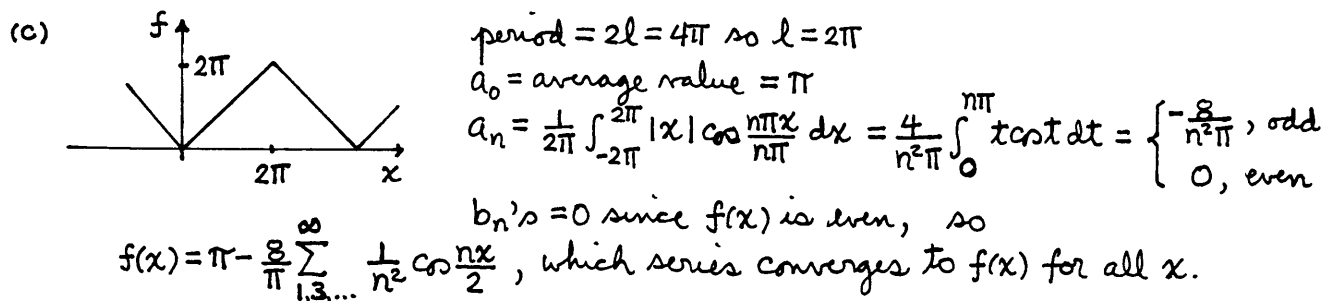 (c) f 2π 2π x
period = 2l = 4π so l = 2π
a₀ = average value = π
aₙ = 1/2π ∫_{-2π}^{2π} |x| cos nπx/nπ dx = 4/n²π ∫_0^{nπ} t cos t dt = { -8/n²π, odd
0, even
bₙ's = 0 since f(x) is even, so
f(x) = π - 8/π ∑_{1,3,...}^{∞} 1/n² cos nx/2, which series converges to f(x) for all x.